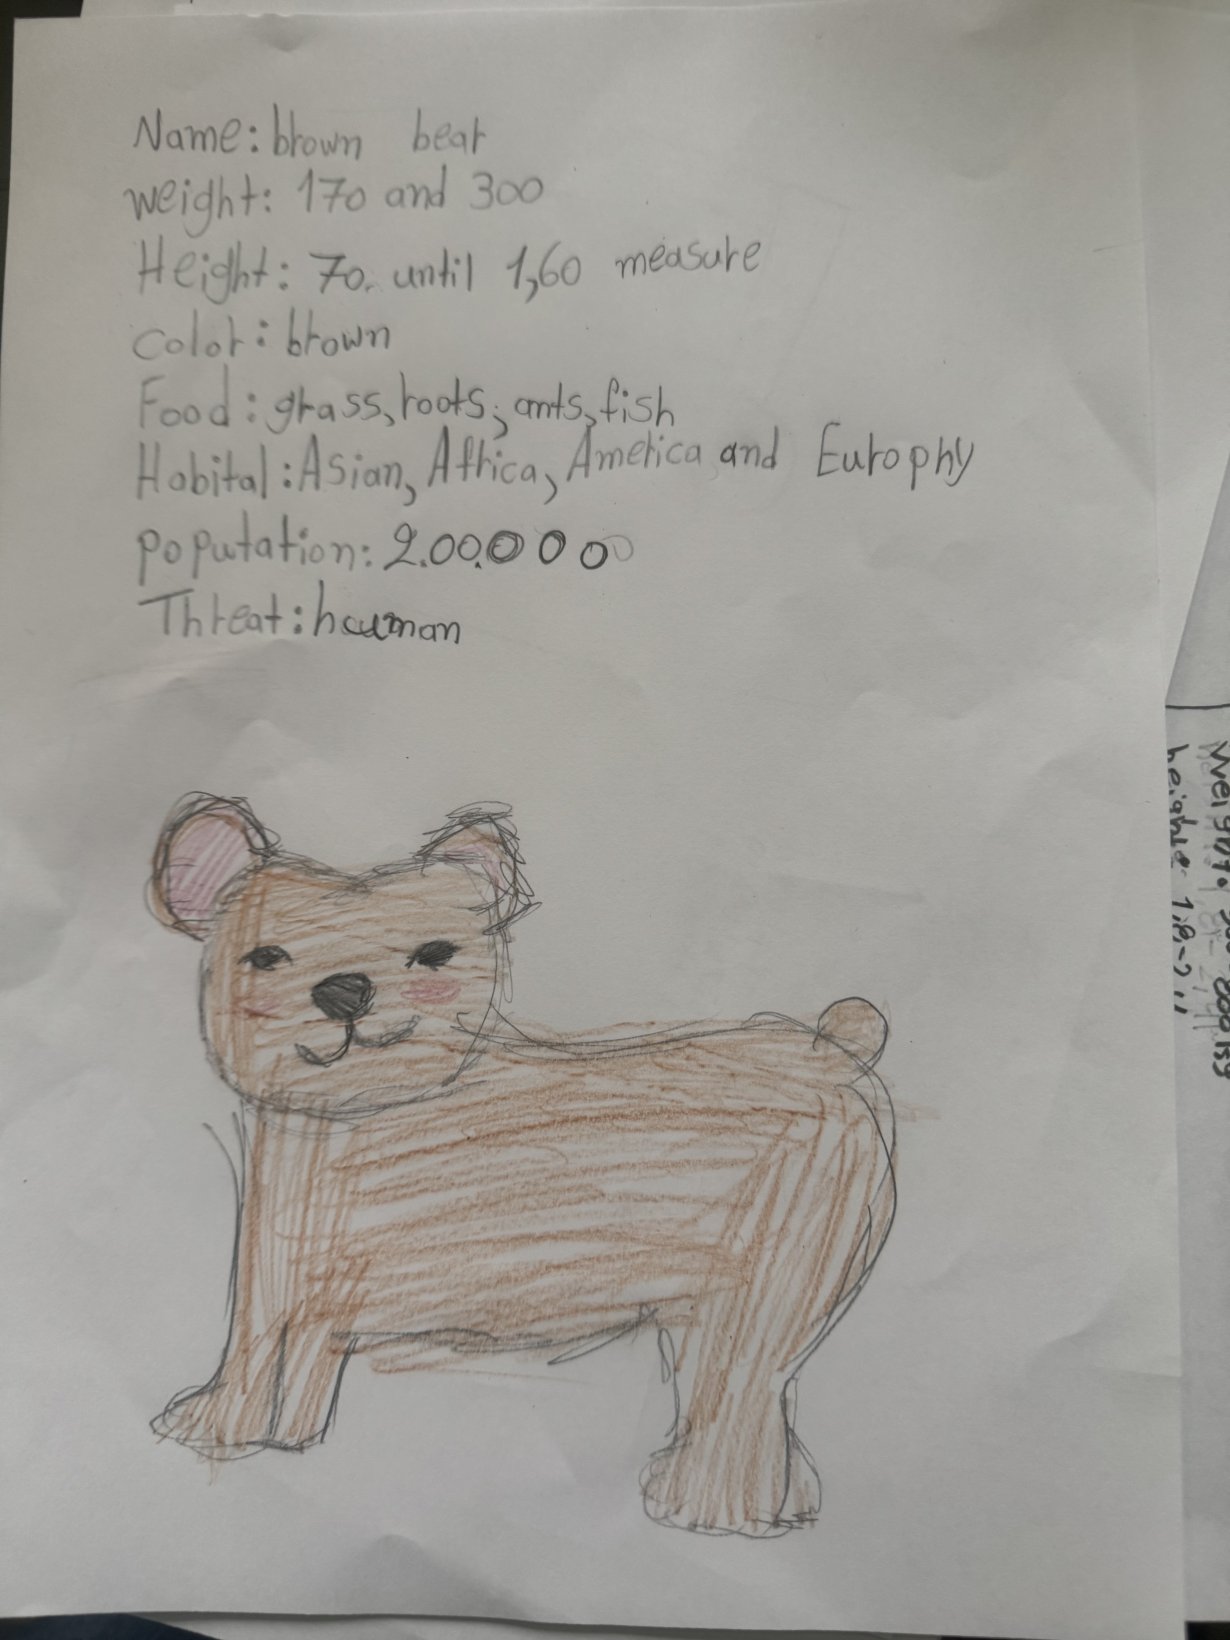 Name: brown bear
weight: 170 and 300
Height: 70. until 1,60 measure
color: brown
Food: grass, roots, ants, fish
Habital: Asian, Africa, America and Europhy
population: 2.00.0000
Threat: hauman
Weight:
height: 1,8,-2,